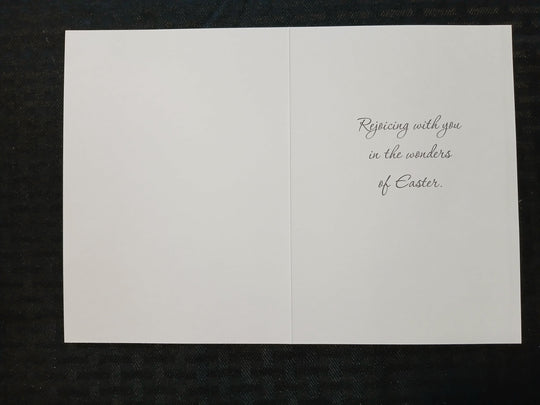 Rejoicing with you
in the wonders
of Easter.